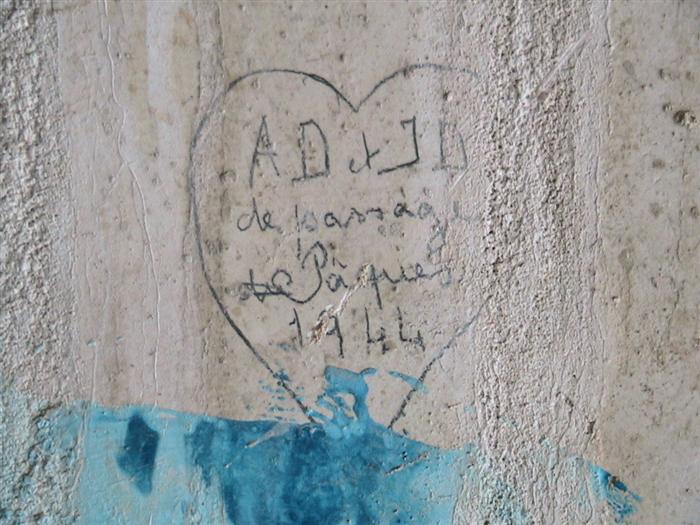 AD & JD
de passage
de Pâques
1944